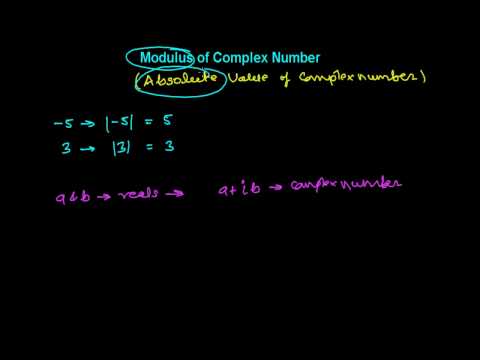 Modulus of Complex Number
(Absolute Value of Complex number)
-5 → |-5| = 5
3 → |3| = 3
a & b → reals → a + i b → complex number